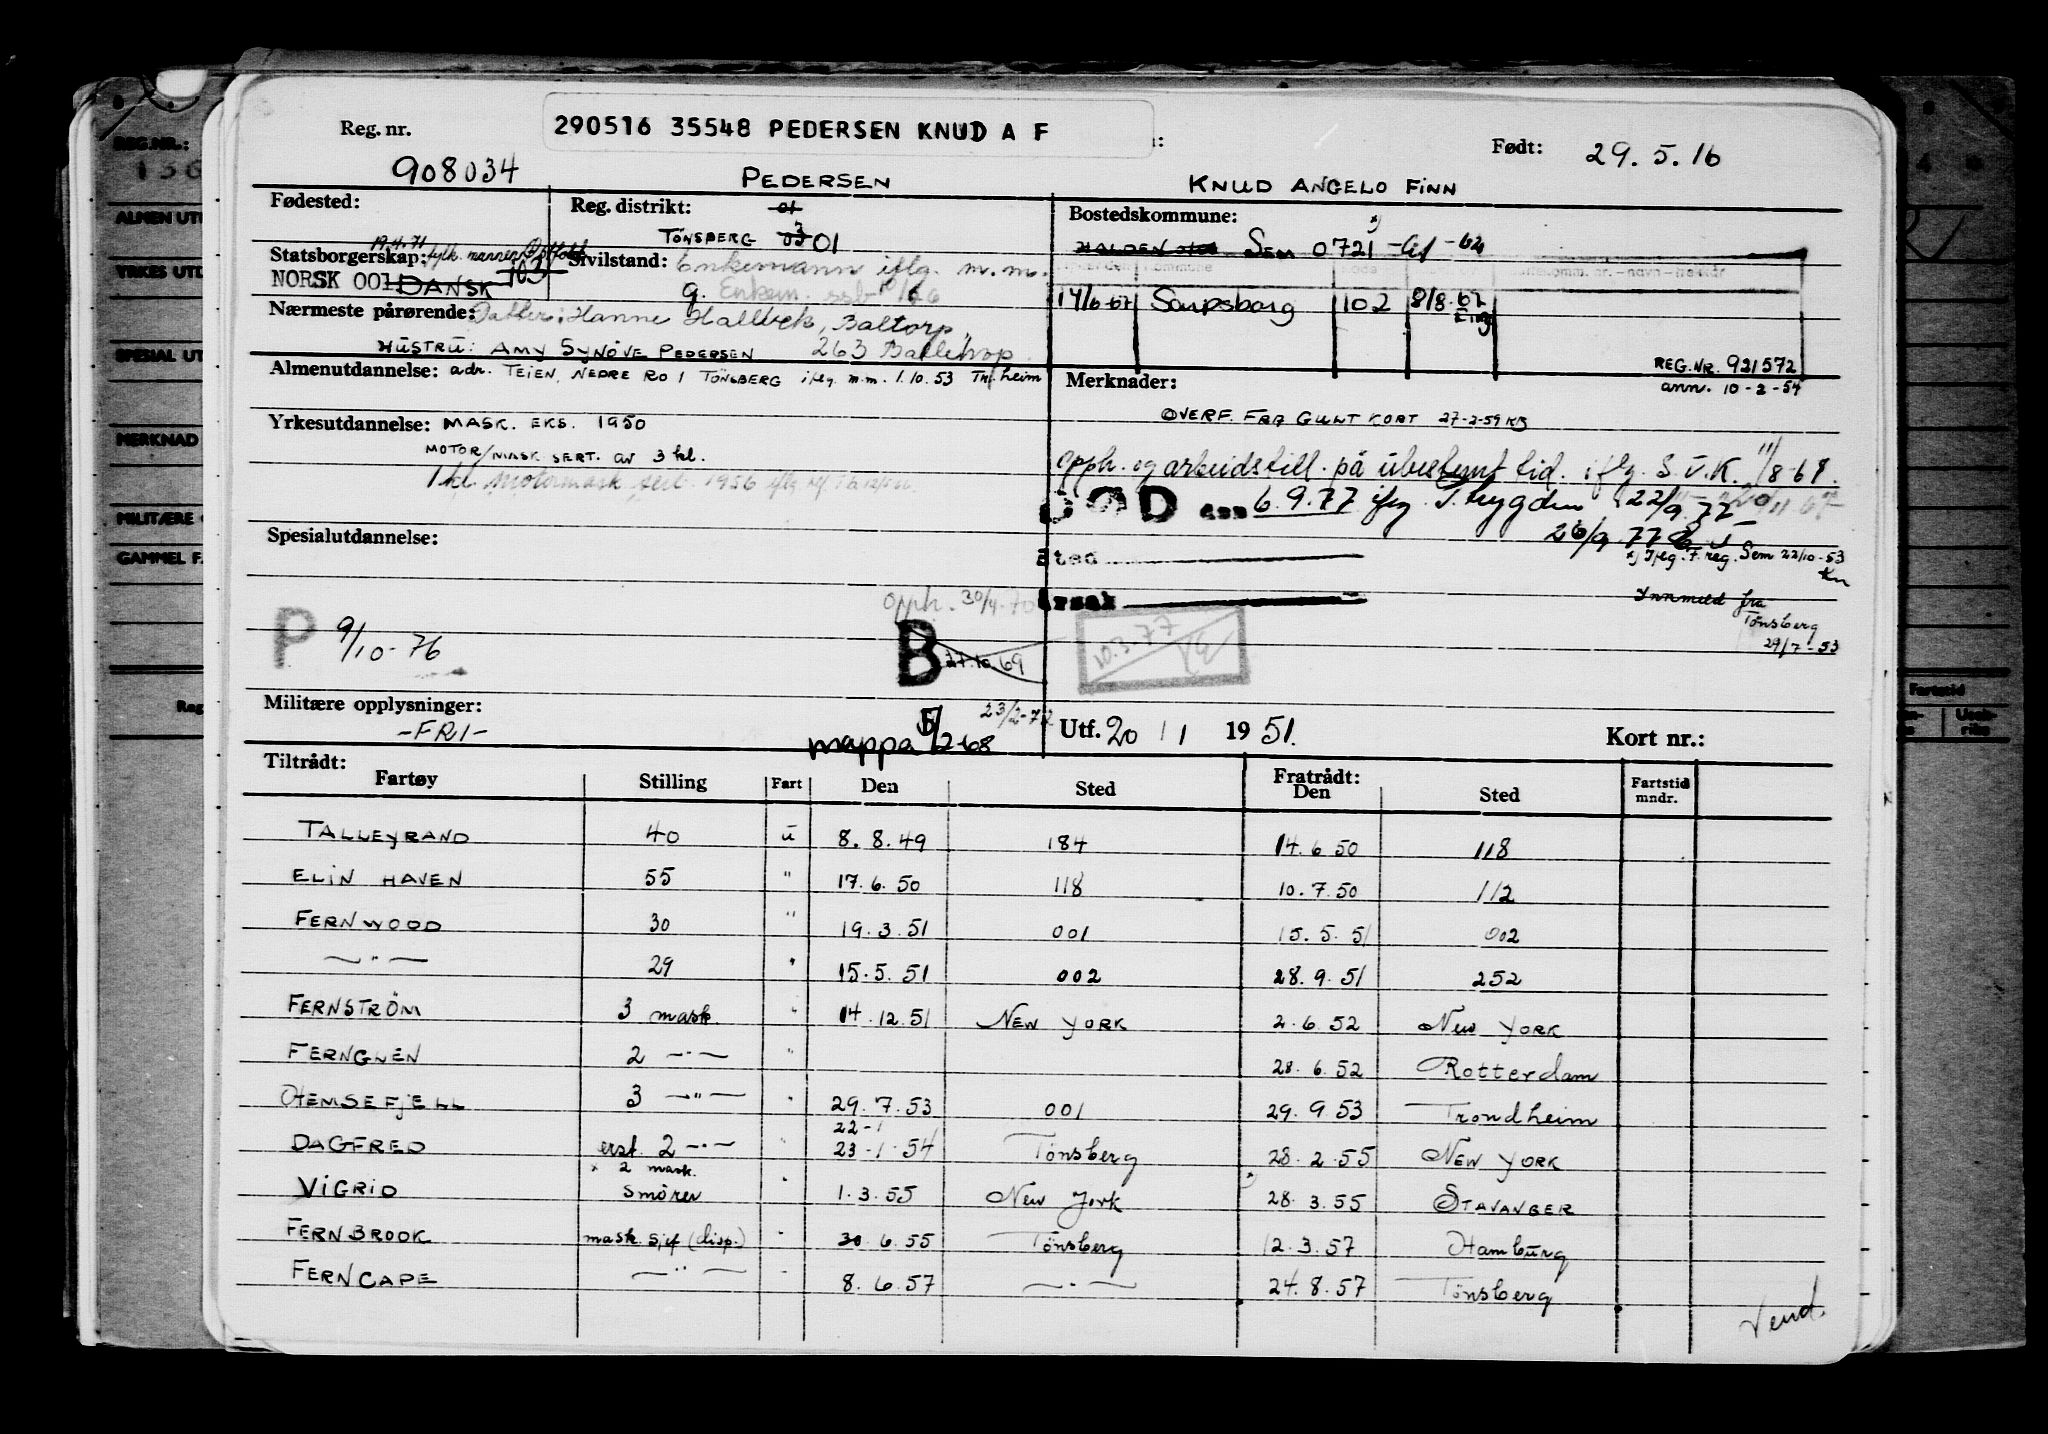 Reg. nr.
290516 35548 PEDERSEN KNUD A F
Født: 29.5.16
908034 PEDERSEN KNUD ANGELO FINN
Fødested:
Reg. distrikt: 01
TÖNSBERG 03 01
Bostedskommune:
HALDEN SEM 0721
Statsborgerskap: 19.4.71 fylk. mannen Østfold
NORSK 001 DANSK 103
Sivilstand: Enkemann iflg. m.m.
g. Enkem.
14/6-67 Sarpsborg 102 8/8-67
Nærmeste pårørende: Datter: Hanne Hallbek, Baltorp,
HUSTRU: AMY SYNÖVE PEDERSEN 263 Ballerup.
REG.NR. 921572
ann. 10-2-54
Almenutdannelse: adr. TEIEN, NEDRE RO 1 TÖNSBERG iflg. m.m. 1.10.53 Tr.heim
Merknader:
OVERF. FRA GULT KORT 27-2-59 KB
Yrkesutdannelse: MASK. EKS. 1950
MOTOR/MASK SERT. AV 3 kl.
1 kl. motormask. sert. 1956
opph. og arbeidstill. på ubestemt tid. iflg. S.U.K. 11/8-67.
DØD den 6.9.77 iflg. T.trygden 22/9.77
26/9.77
Sted
Årsak
x) Iflg. F.reg. Sem 22/10-53
Innmeld fra
Tönsberg
29/7-53
Spesialutdannelse:
P 9/10-76
opph. 30/4-70
B 27.10.69
10.3.77
Militære opplysninger:
-FRI-
mappa 5/2-68
23/2-72
Utf. 20/1 1951.
Kort nr.:
Tiltrådt:
Fartøy Stilling Fart Den Sted Fratrådt: Den Sted Fartstid mndr.
TALLEYRAND 40 u 8.8.49 184 14.6.50 118
ELIN HAVEN 55 " 17.6.50 118 10.7.50 112
FERNWOOD 30 " 19.3.51 001 15.5.51 002
—"— 29 " 15.5.51 002 28.9.51 252
FERNSTRÖM 3 mask. " 14.12.51 NEW YORK 2.6.52 NEW YORK
FERNGLEN 2 —"— " 28.6.52 Rotterdam
HEMSEFJELL 3 —"— " 29.7.53 001 29.9.53 Trondheim
22-1
DAGFRED erst. 2 —"— " 23-1-54 Tönsberg 28.2.55 NEW YORK
x 2 mask.
VIGRID smörer " 1.3.55 New York 28.3.55 STAVANGER
FERNBROOK mask. sjef (disp.) " 30.6.55 Tönsberg 12.3.57 Hamburg
FERNCAPE —"— " 8.6.57 —"— 24.8.57 Tönsberg
Vend.